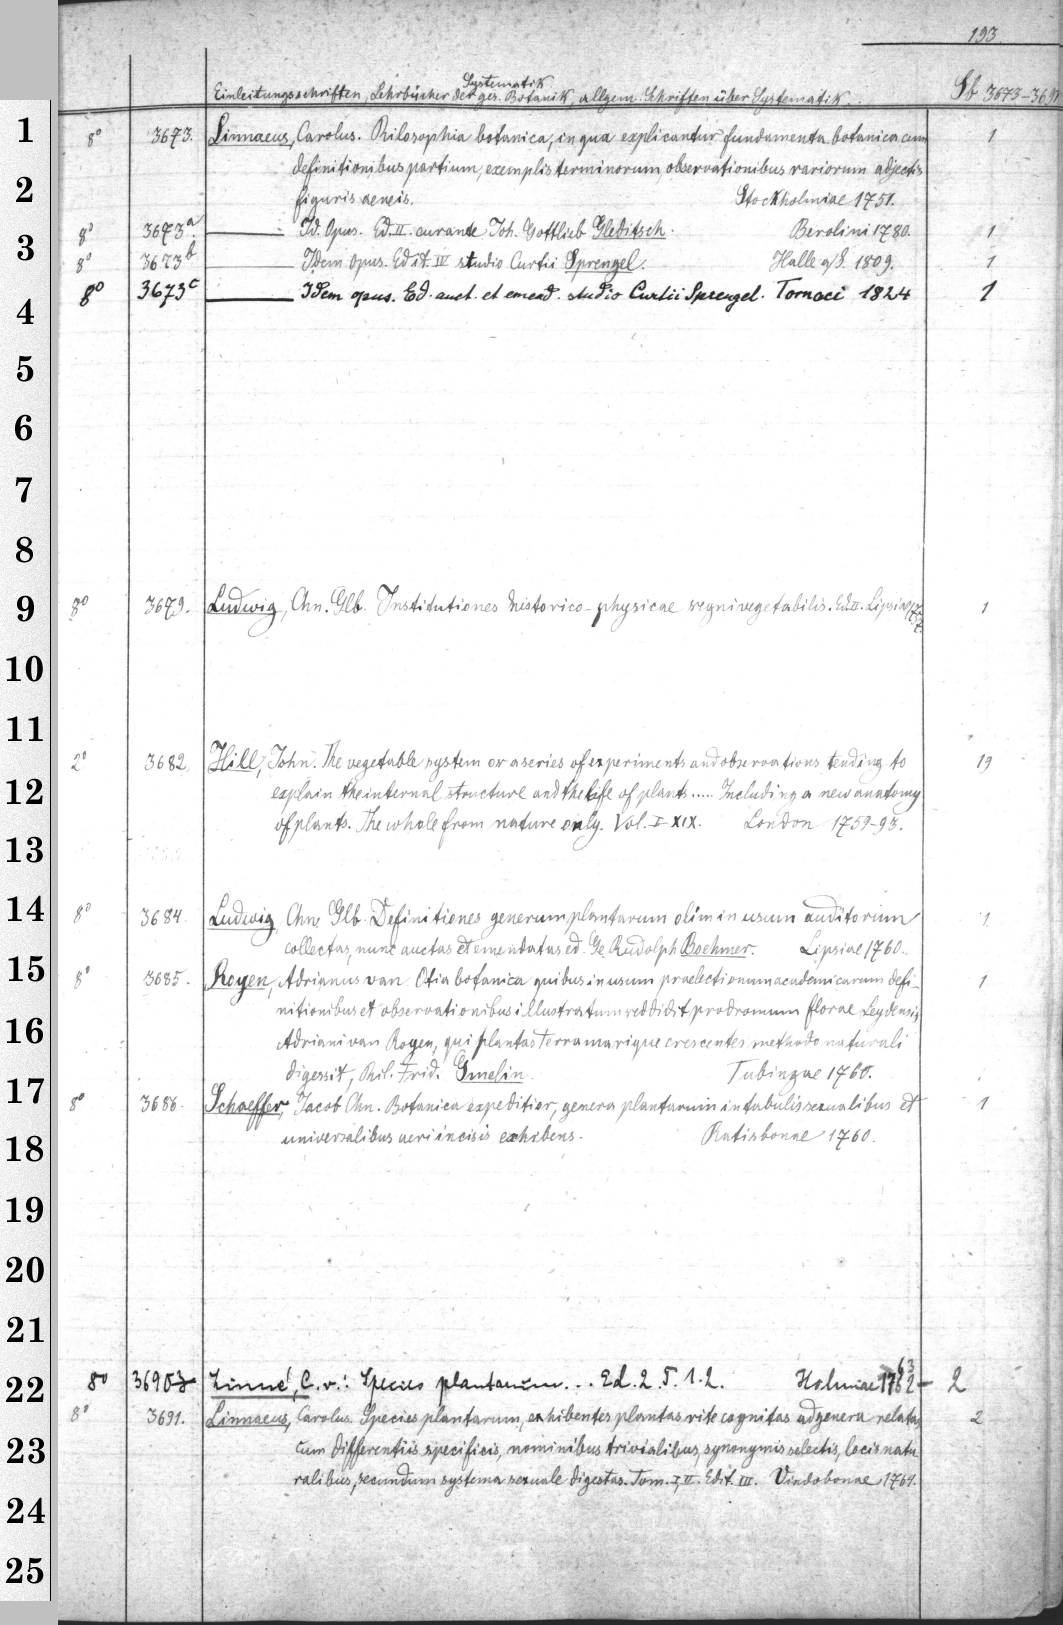 193.
Systematik
Einleitungsschriften, Lehrbücher der ges. Botanik, allgem. Schriften über Systematik. Sb 3673-369
1 8° 3673. Linnaeus, Carolus. Philosophia botanica, in qua explicantur fundamenta botanica cum 1
definitionibus partium, exemplis terminorum, observationibus rariorum adjectis
2 figuris aeneis. Stockholmiae 1751.
3 8° 3673a Id. Opus. Ed. II. curante Joh. Gottlieb Gleditsch. Berolini 1780. 1
8° 3673b Idem opus. Edit. IV studio Curtii Sprengel. Halle a/S. 1809. 1
4 8° 3673c Idem opus. Ed. auct. et emend. studio Curtii Sprengel. Tornaci 1824 1
5
6
7
8
9 8° 3679. Ludwig, Chn. Glb. Institutiones historico-physicae regni vegetabilis. Ed. II. Lipsiae 1
10
11
2° 3682. Hill, John. The vegetable system or a series of experiments and observations tending to 19
12 explain the internal structure and the life of plants..... Including a new anatomy
of plants. The whole from nature only. Vol. I-XIX. London 1759-93.
13
14 8° 3684. Ludwig, Chn. Glb. Definitiones generum plantarum olim in usum auditorium 1
collectas, nunc auctas et emendatas ed. Ge. Rudolph Boehmer. Lipsiae 1760.
15 8° 3685. Royen, Adrianus van. Otia botanica quibus in usum praelectionum academicarum defi- 1
nitionibus et observationibus illustratum reddidit prodromum florae Leydensis
16 Adriani van Royen, qui plantas terra marique crescentes methodo naturali
digessit, Phil. Frid. Gmelin. Tubingae 1760.
17 8° 3686. Schaeffer, Jacob Chn. Botanica expeditior, genera plantarum in tabulis sexualibus et 1
18 universalibus aeri incisis exhibens. Ratisbonae 1760.
19
20
21
22 8° 3690 Linné, C. v.: Species plantarum... Ed. 2. T. 1. 2. Holmiae 1762-63 2
8° 3691. Linnaeus, Carolus. Species plantarum, exhibentes plantas rite cognitas ad genera relatas 2
23 cum differentiis specificis, nominibus trivialibus, synonymis selectis, locis natu
ralibus, secundum systema sexuale digestas. Tom. I, II. Edit. III. Vindobonae 1764.
24
25